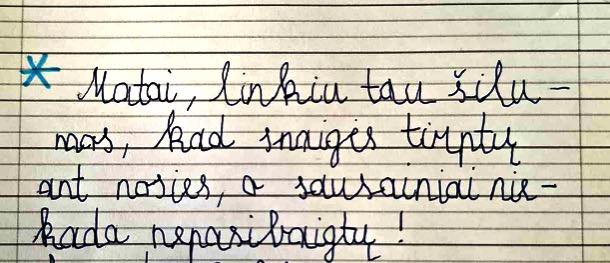 * Matai, linkiu tau šilu-
mos, kad snaigės tirptų
ant nosies, o sausainiai nie-
kada nepasibaigtų!